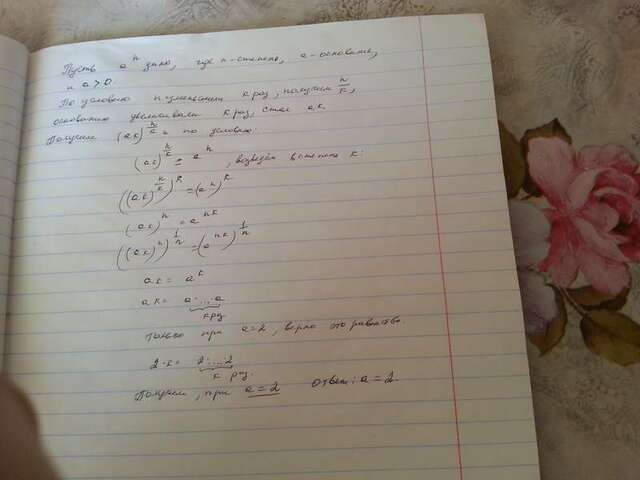 Пусть a^n дано, где n-степень, a-основание,
и a>0
По условию n уменьшаем k раз, получим n/k,
основание увеличивали k раз, стал ak.
Получим (ak)^(n/k) = по условию:
(ak)^(n/k) = a^n, возведём в степень k:
((ak)^(n/k))^k = (a^n)^k
(ak)^n = a^(nk)
((ak)^n)^(1/n) = (a^(nk))^(1/n)
ak = a^k
ak = a·...·a
k раз
только при a=2, верно это равенство.
2·k = 2·...·2
k раз.
Получим, при a=2 Ответ: a=2.